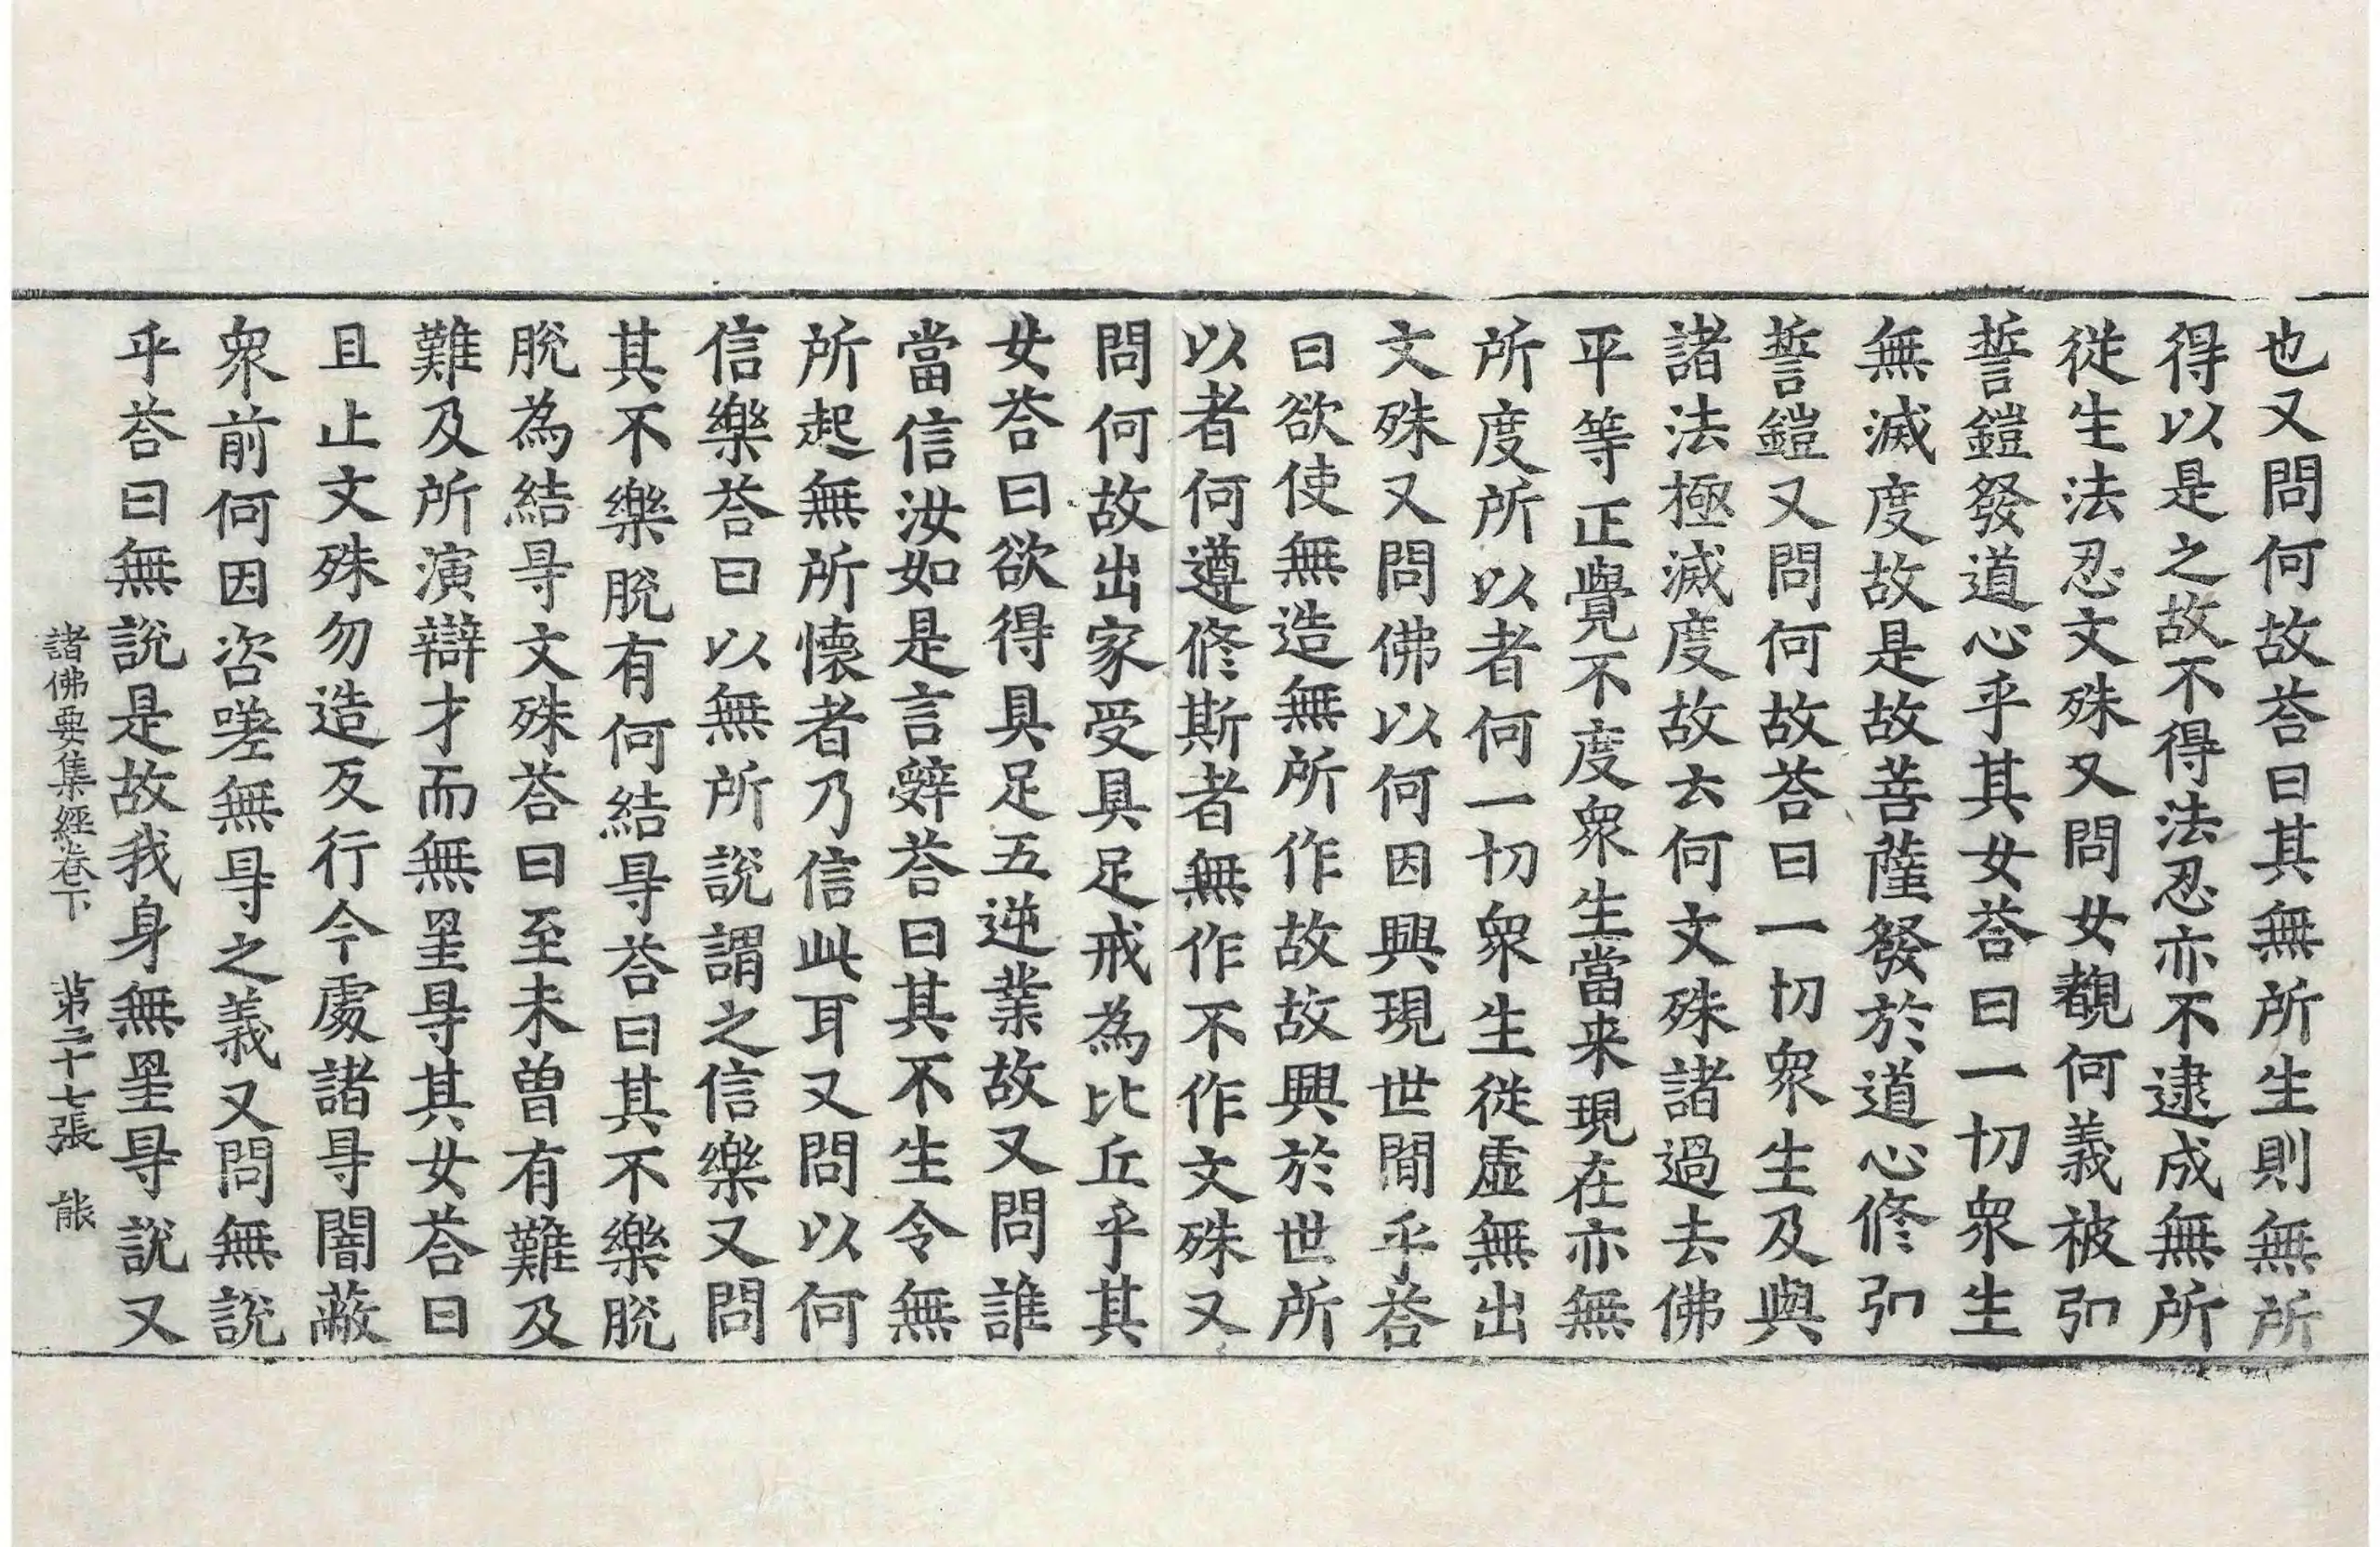 也又問何故荅曰其無所生則無所
得以是之故不得法忍亦不逮成無所
從生法忍文殊又問女覩何義被弘
誓鎧發道心乎其女荅曰一切衆生
無滅度故是故菩薩發於道心修弘
誓鎧又問何故荅曰一切衆生及與
諸法極滅度故去何文殊諸過去佛
平等正覺不度衆生當来現在亦無
所度所以者何一切衆生從虛無出
文殊又問佛以何因興現世間乎荅
曰欲使無造無所作故故興於世所
以者何遵修斯者無作不作文殊又
問何故出家受具足戒為比丘乎其
女荅曰欲得具足五逆業故又問誰
當信汝如是言辝荅曰其不生令無
所起無所懷者乃信此耳又問以何
信樂荅曰以無所說謂之信樂又問
其不樂脫有何結㝵荅曰其不樂脫
脫為結㝵文殊荅曰至未曾有難及
難及所演辯才而無罣㝵其女荅曰
且止文殊勿造反行今處諸㝵闇蔽
衆前何因咨嗟無㝵之義又問無說
乎荅曰無說是故我身無罣㝵說又
諸佛要集經卷下 第二十七張 能